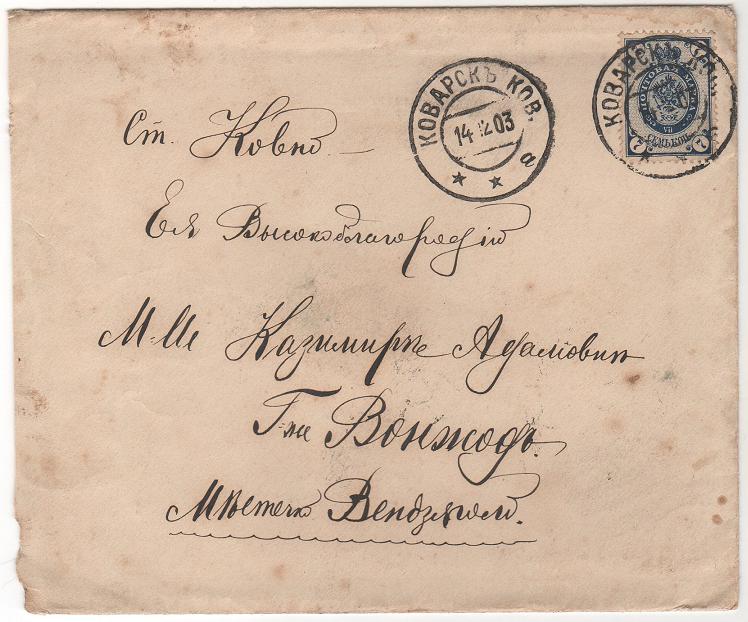 КОВАРСКЪ КОВ.
14 12 03
а
КОВАРСКЪ
ПОЧТОВАЯ МАРКА
VII
7 СЕМЬ КОП. 7
Ст. Ковно
Ея Высокоблагородію
М-Ме Казимирѣ Адамовнѣ
Г-жѣ Вонжодъ.
Мѣстечко Вендзяголо.